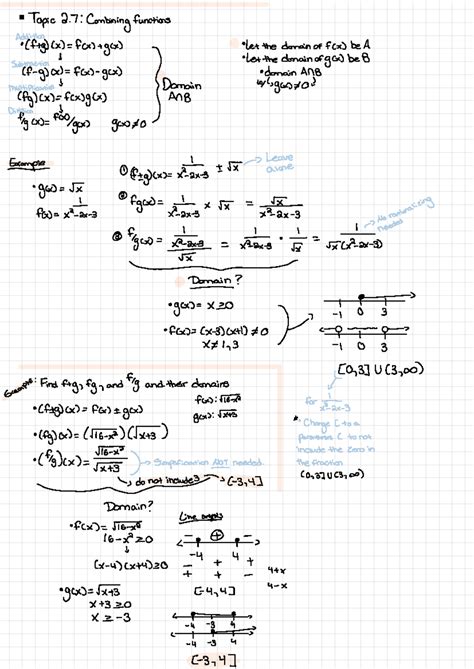 ▪ Topic 2.7: Combining functions
Addition
• (f+g)(x) = f(x) + g(x)
Subtraction
(f-g)(x) = f(x) - g(x)
Multiplication
(fg)(x) = f(x)g(x)
Division
f/g (x) = f(x)/g(x) g(x) ≠ 0
Domain
A∩B
• Let the domain of f(x) be A
• Let the domain of g(x) be B
• domain A∩B
w/ g(x) ≠ 0
Example
• g(x) = √x
f(x) = 1/(x²-2x-3)
① (f±g)(x) = 1/(x²-2x-3) ± √x → Leave alone
② fg(x) = 1/(x²-2x-3) × √x = √x/(x²-2x-3)
③ f/g(x) = (1/(x²-2x-3))/√x = 1/(x²-2x-3) · 1/√x = 1/(√x(x²-2x-3))
No rationalizing needed
Domain?
• g(x) = x ≥ 0
• f(x) = (x-3)(x+1) ≠ 0
x ≠ 1, 3
-1 0 3
-1 0 3
[0,3] ∪ (3,∞)
for 1/(x²-2x-3)
Change [ to a
parenthesis ( to not
include the zero in
the fraction
(0,3] ∪ (3,∞)
Example: Find f+g, fg, and f/g and their domains
f(x): √(16-x²)
g(x): √(x+3)
• (f±g)(x) = f(x) ± g(x)
• (fg)(x) = (√(16-x²))(√(x+3))
• (f/g)(x) = √(16-x²)/√(x+3) → Simplification NOT needed
→ do not include 3 → (-3,4]
Domain?
• f(x) = √(16-x²)
16-x² ≥ 0
(x-4)(x+4) ≥ 0
• g(x) = √(x+3)
x+3 ≥ 0
x ≥ -3
Line graphs
- + -
-4 4
- + +
+ + -
4+x
4-x
[-4,4]
-4 -3 4
-4 -3 4
[-3,4]